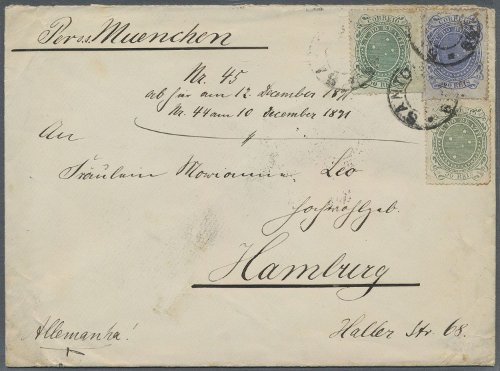 Per ss. Muenchen
Nr. 45
ab hier am 12 December 1891
Nr. 44 am 10 December 1891
An
Fräulein Marianne Leo
Hochwohlgeb.
Hamburg
Allemanha!
Haller Str 68.
CORREIO
CORREIO
SANTOS